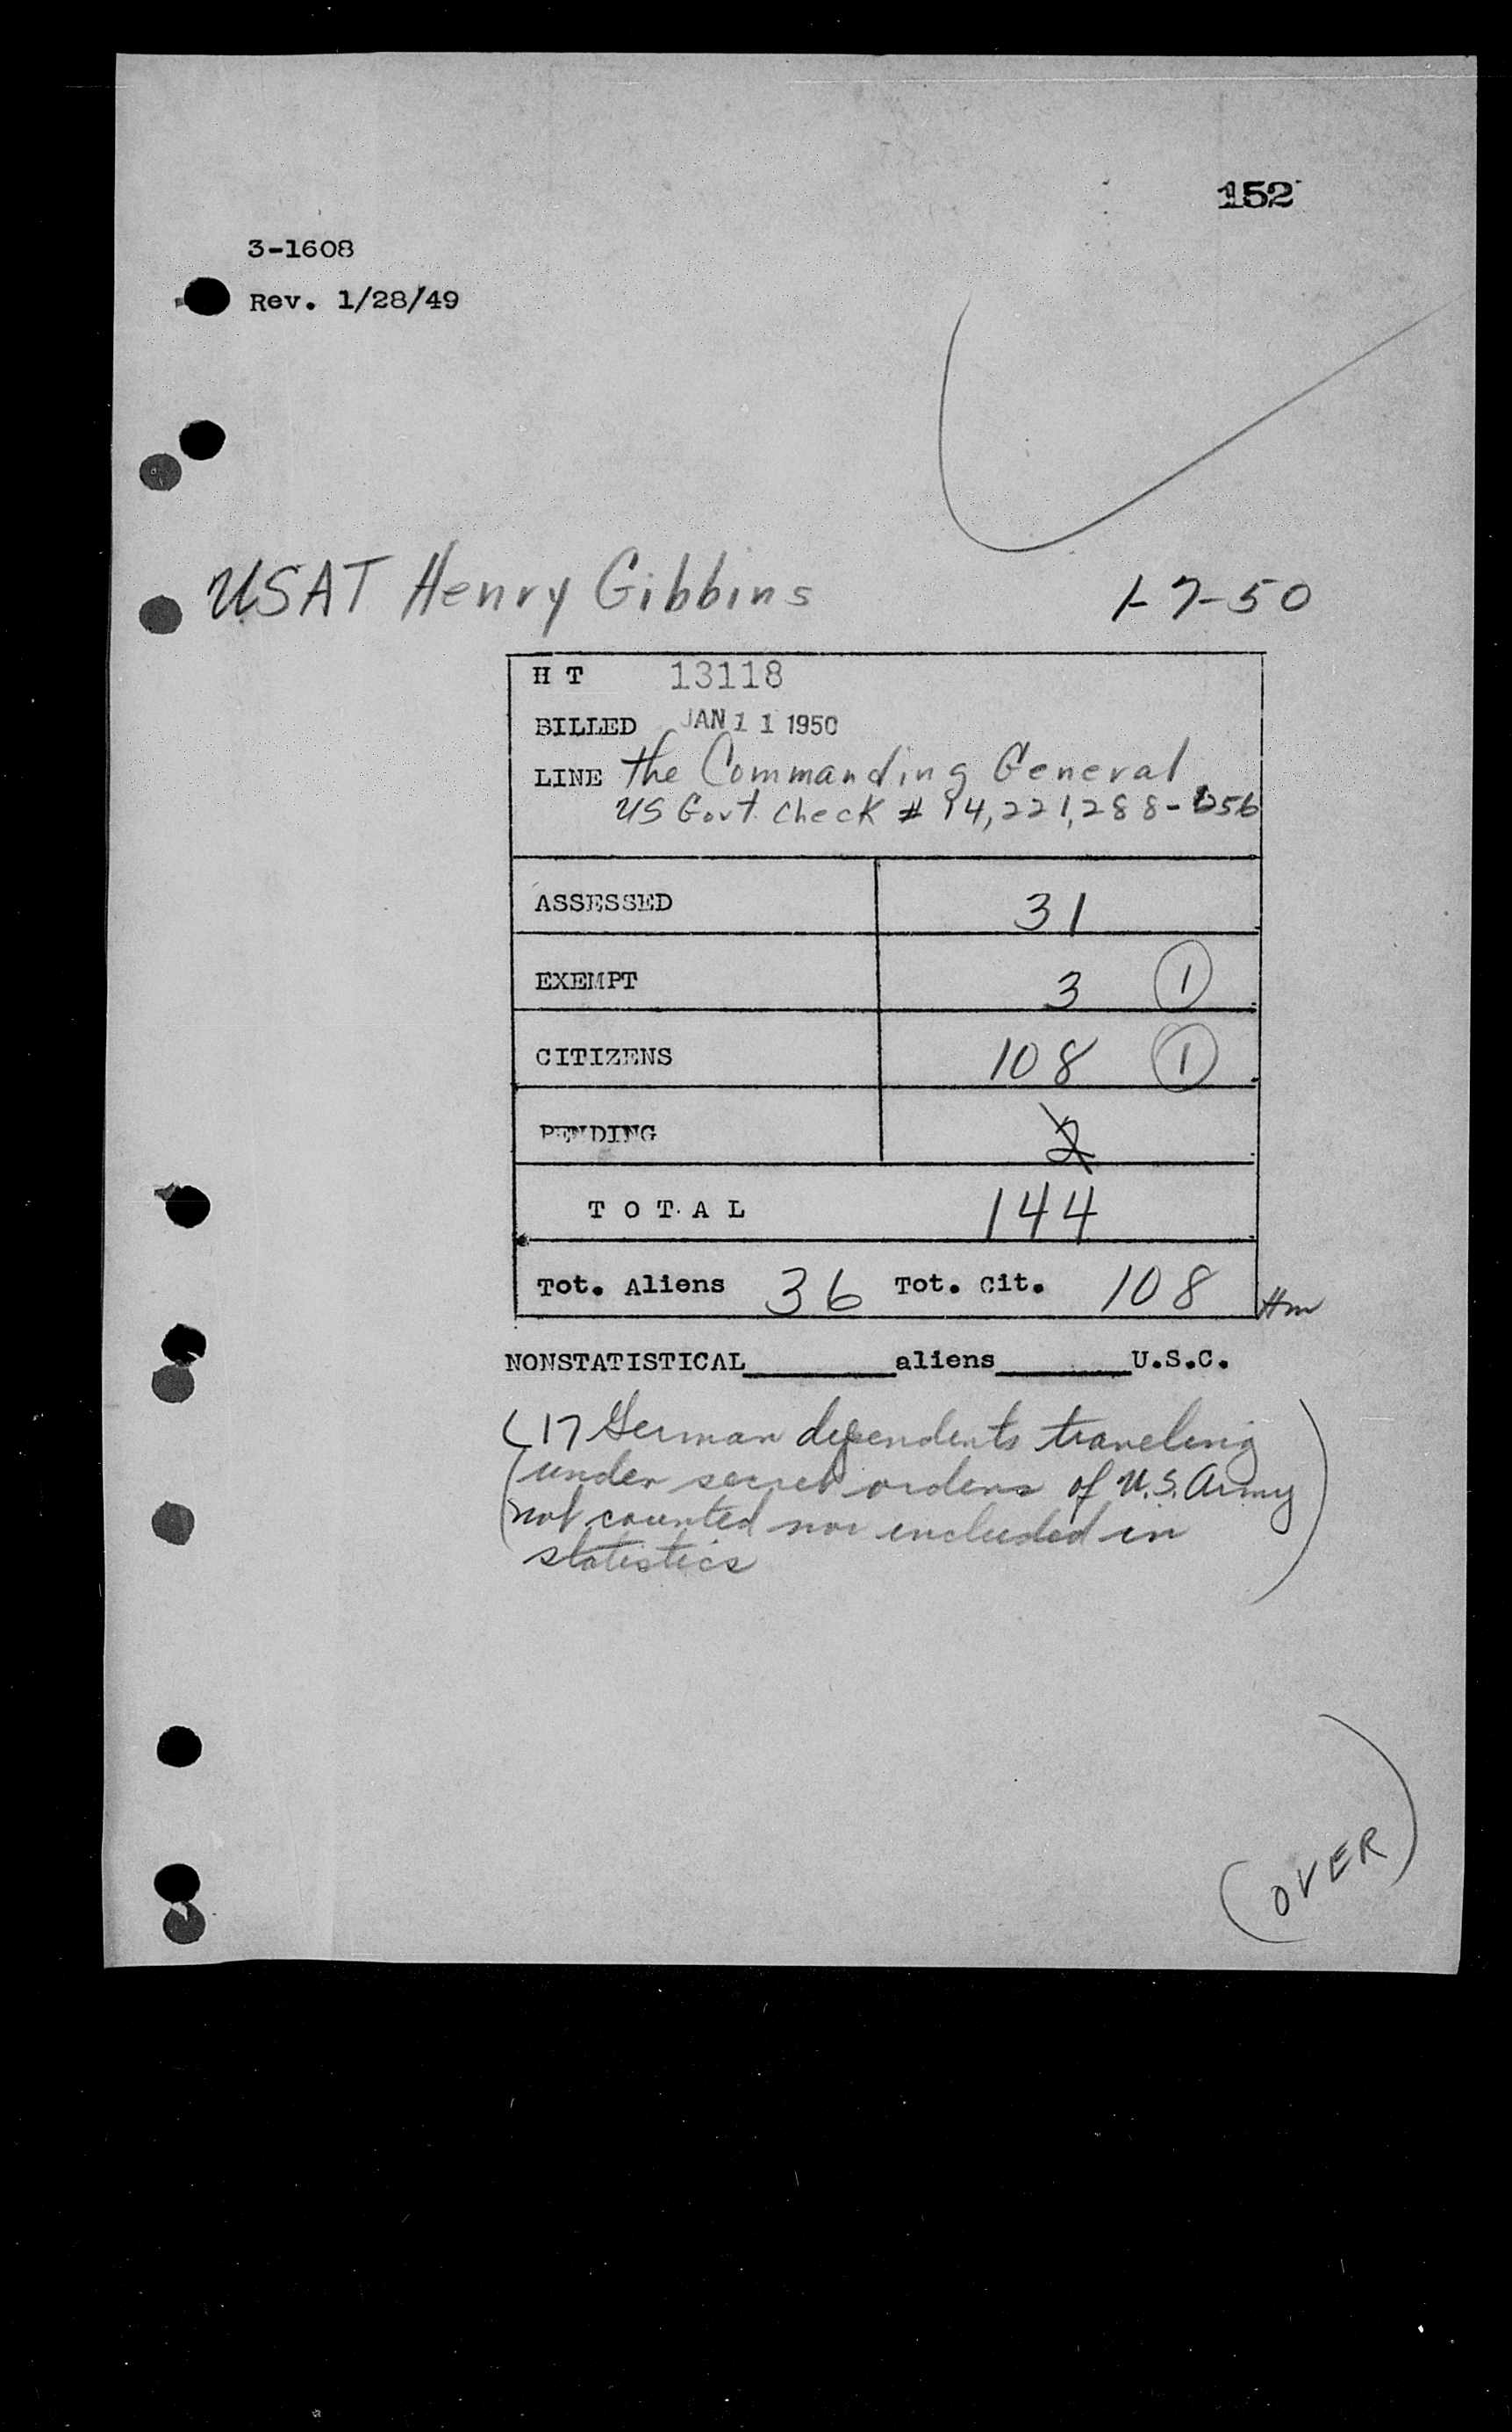 152
3-1608
Rev. 1/28/49
USAT Henry Gibbins 1-7-50
H T 13118
BILLED JAN 11 1950
LINE the Commanding General
US Govt. Check # 14,221,288-656
ASSESSED 31
EXEMPT 3 1
CITIZENS 108 1
PENDING 2
T O T A L 144
Tot. Aliens 36 Tot. Cit. 108 Hm
NONSTATISTICAL________aliens_______U.S.C.
(17 German dependents traveling
under secret orders of U.S. Army
not counted nor included in
statistics)
(OVER)